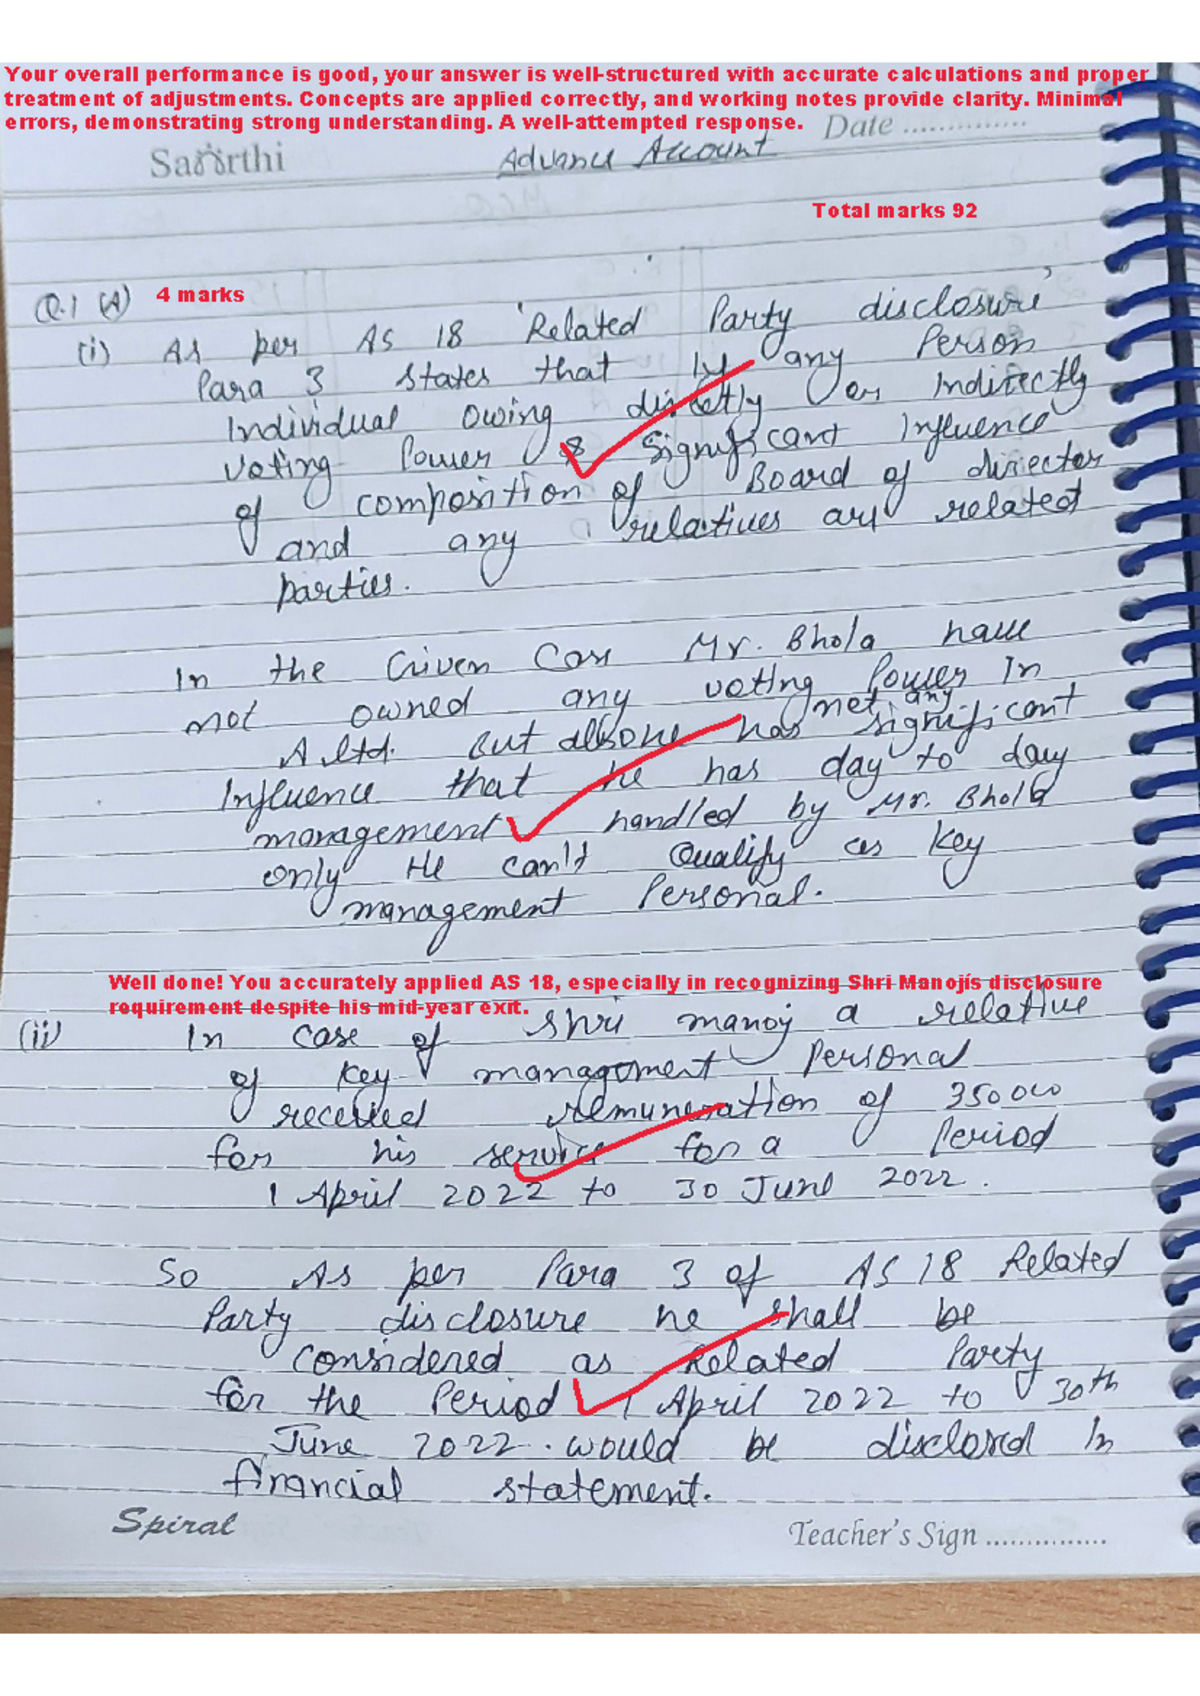 Your overall performance is good, your answer is well-structured with accurate calculations and proper
treatment of adjustments. Concepts are applied correctly, and working notes provide clarity. Minimal
errors, demonstrating strong understanding. A well-attempted response.
Date ..............
Saarthi
Advance Account
Total marks 92
Q.1 (A) 4 marks
(i) As per AS 18 'Related Party disclosure'
Para 3 states that any Person
Individual owing directly or Indirectly
voting Power & Significant Influence
of composition of Board of director
and any relatives are related
parties.
In the Given Case Mr. Bhola have
not owned any voting Power In
A ltd. But has not any significant
Influence that he has day to day
management handled by Mr. Bhola
only He can't Qualify as Key
management Personal.
Well done! You accurately applied AS 18, especially in recognizing Shri Manojís disclosure
requirement despite his mid-year exit.
(ii) In case of Shri manoj a relative
of Key management Personal
received remuneration of 350000
for his service for a Period
1 April 2022 to 30 June 2022.
So As per Para 3 of AS 18 Related
Party disclosure he shall be
considered as Related Party
for the Period 1 April 2022 to 30th
June 2022. would be disclosed In
financial statement.
Spiral
Teacher's Sign ...............